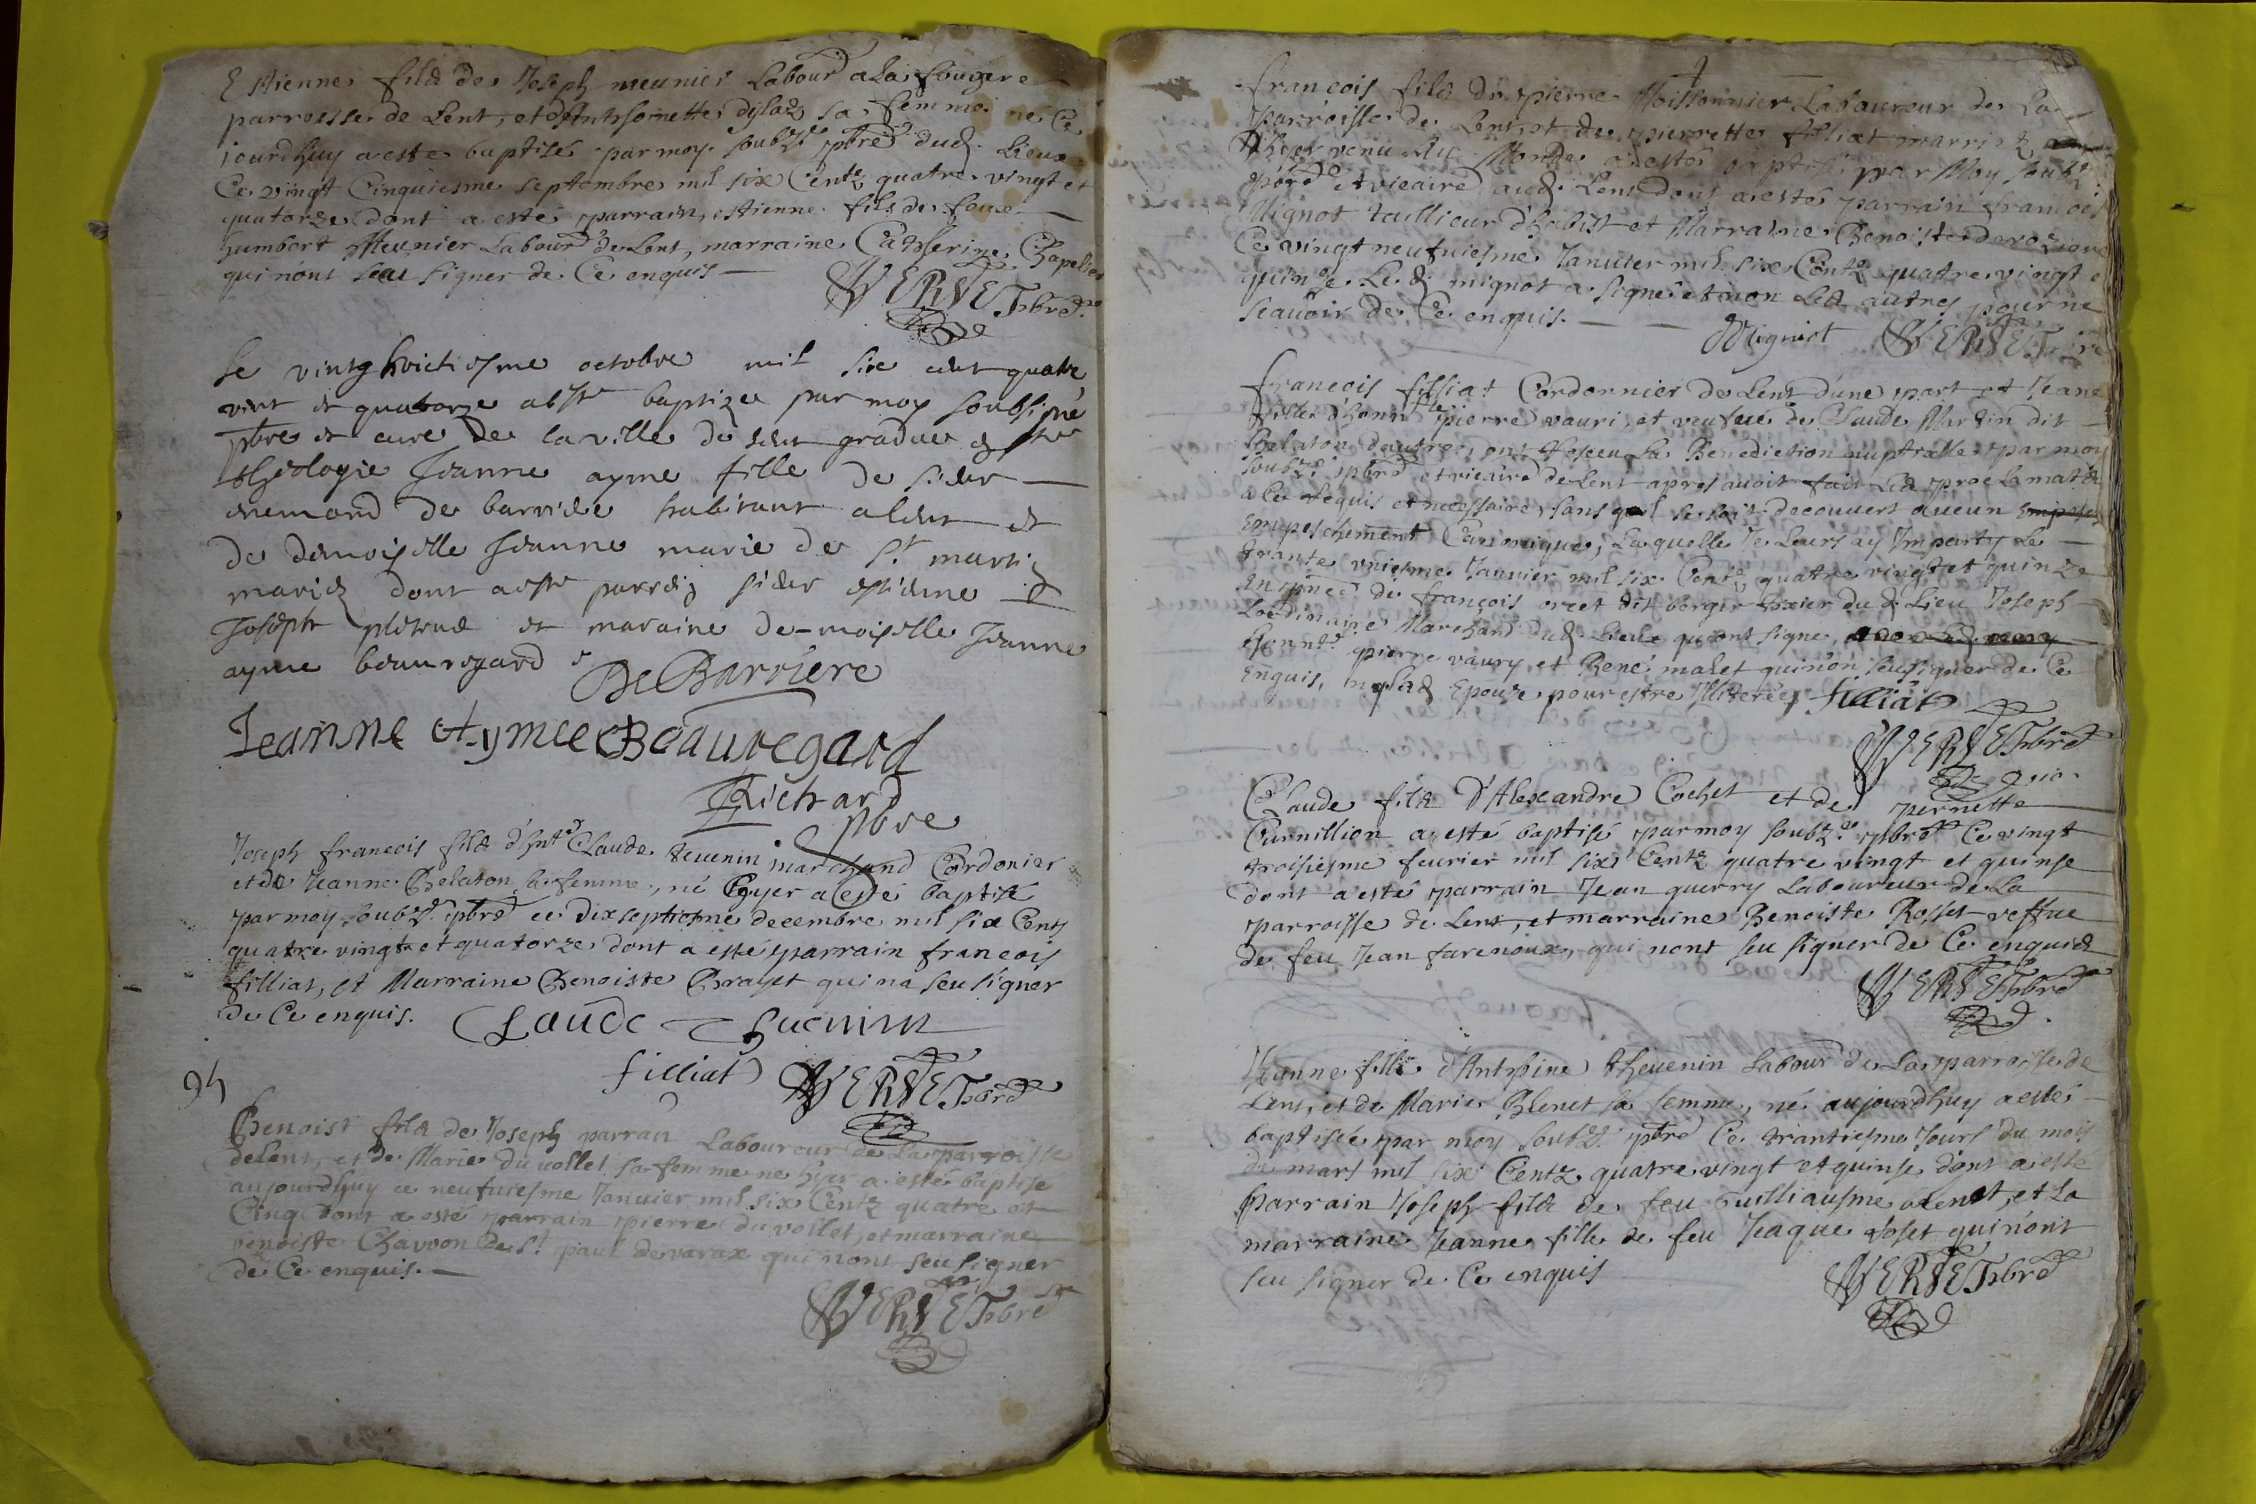 Estienne fils de Joseph meunier Labour a la fougere
parroisse de Lent, et d'Anthoinette sa femme né Ce
jourdhuy a esté baptisé par moy soubz. pbre dud. Lieu
Ce vingt Cinquiesme septembre mil six Centz quatre vingt et
quatorze dont a esté parrain, estienne fils de feue
humbert Meunier Labour de Lent, marraine Catherine Chapelier
qui n'ont sceu signer de Ce enquis
VERNET pbre
Le vintg huictiesme octobre mil sixe cent quatre
vint et quatorze a este baptizee par moy soubsigné
pbre et cure de la ville de Lent gradue en ste
theologie Jeanne ayme fille de sieur
enemond de barriere habitant a Lent et
de demoiselle Jeanne marie de St. martin
mariez dont a este parrein sieur estienne
Joseph et maraine demoiselle Jeanne
ayme beauregard
De Barriere
Jeanne Aymee Beauregard
Richard
pbre
Joseph francois fils d'hnt Claude tevenin marchand Cordonier
et de Jeanne Belaton sa femme, né hyer a esté baptisé
par moy soubz. pbre ce dixseptiesme decembre mil six Cents
quatre vingt et quatorze dont a esté parrain francois
filliat, et Marraine Benoiste Brayet qui na seu signer
de Ce enquis.
Claude Thuenin
filliat VERNET pbre
95
Benoist fils de Joseph parrau Laboureur de La parroisse
de Lent, et de Marie du vollet sa femme ne hyer a esté baptise
aujourdhuy ce neufuiesme Januier mil six Centz quatre et
Cinq dont a esté parrain pierre du vollet, et marraine
benoiste Chavvon de St. paul de varax qui nont seu signer
de Ce enquis.
VERNET pbre
francois fils de pierre Moissonnier Laboureur de La
parroisse de Lent, et de pierrette filliat marriez
hyer venu au Monde a esté baptisé par Moy soubz
pbre et vicaire aud. Lent dont a esté parrain francois
Mignot tallieur d'habist et Marraine Benoiste
Ce vingt neufuiesme Januier mil six Centz quatre vingt et
quinze. Le d. mignot a signé et non Les autres pour ne
scauoir de Ce enquis.
Mignot VERNET pbre
francois filliat Cordonnier de Lent d'une part et Jeane
fille d'honn pierre vauri, et veufue de Claude Martin dit
Belaton d'autre, ont Receu La Benediction nuptialle par moy
soubz. pbre et vicaire de Lent apres auoir fait Les proclamatz
a Ce Requis et necessaire, sans quil se soit decouuert aucun
empeschement Canonique, Laquelle Je Leurs ay Imparty Le
trante vniesme Januier mil six Centz quatre vingt et quinze
en pñce de françois orcet dit berger dud Lieu Joseph
Lordinaire Marchand dud Lieux qui ont signe,
honnt. pierre vaury, et René malet qui n'on seu signer de Ce
enquis, ny Lad. Epouze pour estre Illiterée filliat
VERNET pbre
Claude fils d'Alexandre Cochet et de pernette
Curnillion a esté baptisé par moy soubz. pbre Ce vingt
troisiesme feurier mil six Centz quatre vingt et quinse
dont a esté parrain Jean guerry Laboureur de La
parroisse de Lent, et marraine Benoiste Rosset veffue
de feu Jean farenoux, qui nont seu signer de Ce enquis
VERNET pbre
Jeanne fille d'Anthoine theuenin Labour de La parroisse de
Lent, et de Marie Blenet sa femme, né aujourdhuy a esté
baptisée par moy soubz. pbre Ce trantiesme Jours du mois
de mars mil six Centz quatre vingt et quinse dont a esté
parrain Joseph fils de feu Guilliausme blenet, et La
marraine Jeanne fille de feu Jaque qui n'ont
seu signer de Ce enquis
VERNET pbre